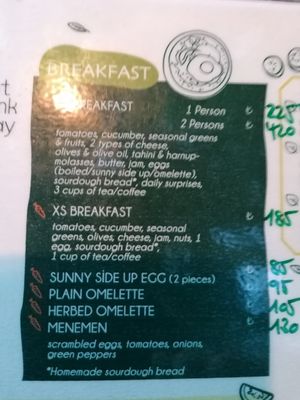 BREAKFAST
BREAKFAST 1 Person ₺ 225
2 Persons ₺ 420
tomatoes, cucumber, seasonal greens
& fruits, 2 types of cheese,
olives & olive oil, tahini & harnup-
molasses, butter, jam, eggs
(boiled/sunny side up/omelette),
sourdough bread*, daily surprises,
3 cups of tea/coffee
XS BREAKFAST ₺ 185
tomatoes, cucumber, seasonal
greens, olives, cheese, jam, nuts, 1
egg, sourdough bread*,
1 cup of tea/coffee
SUNNY SİDE UP EGG (2 pieces) ₺ 85
PLAIN OMELETTE ₺ 95
HERBED OMELETTE ₺ 105
MENEMEN ₺ 120
scrambled eggs, tomatoes, onions,
green peppers
*Homemade sourdough bread